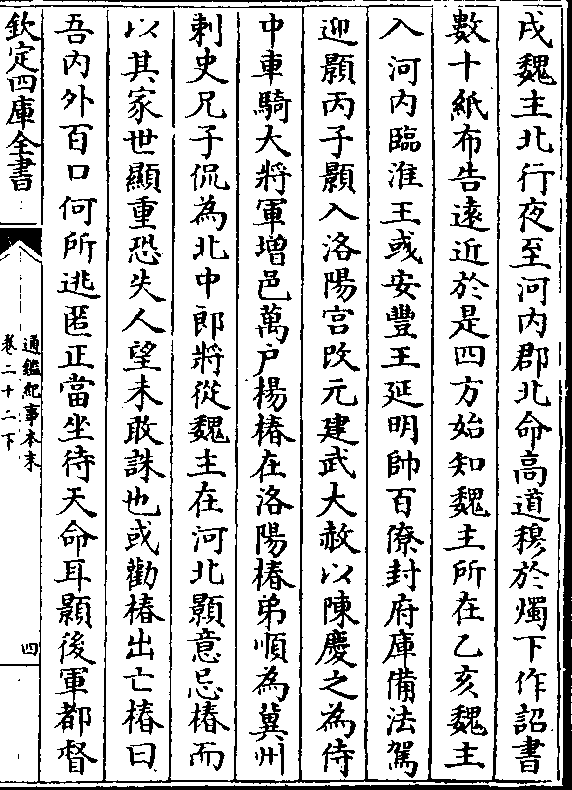 戌魏主北行夜至河内郡北命高道穆於燭下作詔書
數十紙布告遠近於是四方始知魏主所在乙亥魏主
入河内臨淮王彧安豐王延明帥百僚封府庫備法駕
迎顥丙子顥入洛陽宫改元建武大赦以陳慶之為侍
中車騎大將軍增邑萬户楊椿在洛陽椿弟順為冀州
刺史兄子侃為北中郎將從魏主在河北顥意忌椿而
以其家世顯重恐失人望未敢誅也或勸椿出亡椿曰
吾内外百口何所逃匿正當坐待天命耳顥後軍都督
欽定四庫全書
通鑑紀事本末
卷二十二下
四